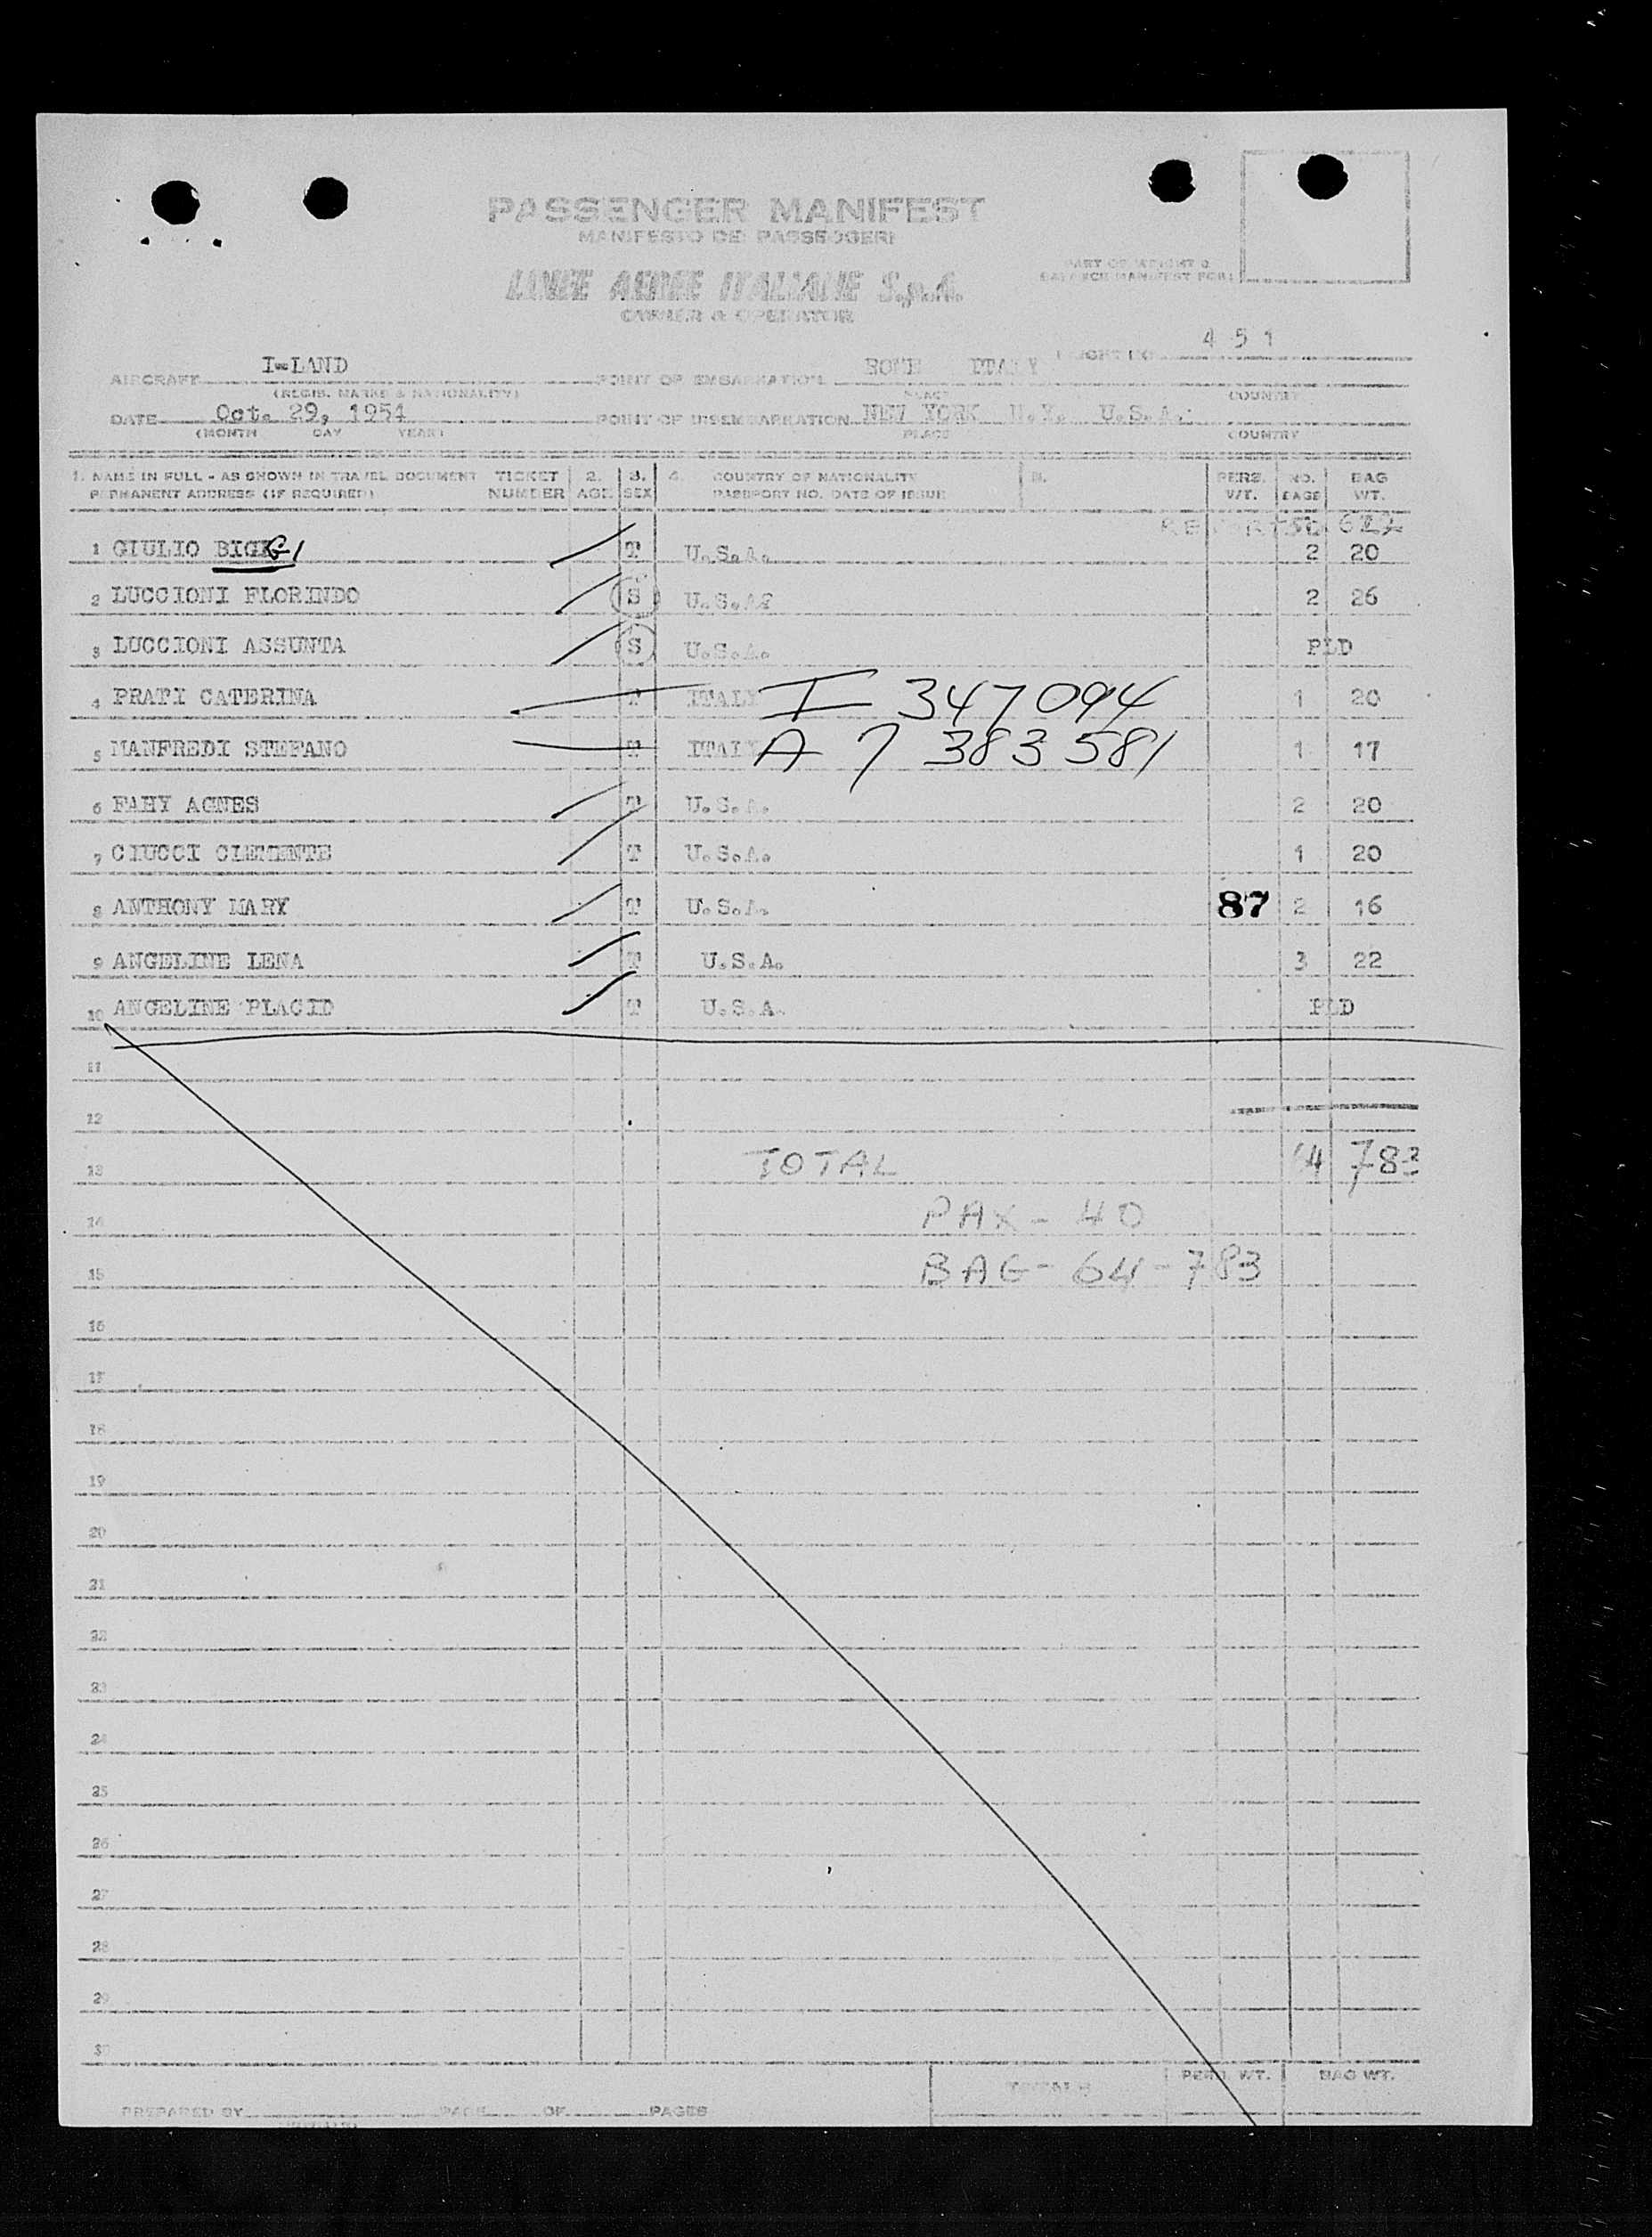 PASSENGER MANIFEST
MANIFESTO DEI PASSEGGERI
LINEE AEREE ITALIANE S.p.A.
OWNER & OPERATOR
PART OF WEIGHT &
BALANCE MANIFEST FOR:
FLIGHT NO. 4 5 1
AIRCRAFT I-LAND POINT OF EMBARKATION ROME ITALY
(REGIS. MARKS & NATIONALITY) PLACE COUNTRY
DATE Oct. 29, 1954 POINT OF DISEMBARKATION NEW YORK N.Y. U.S.A.
(MONTH DAY YEAR) PLACE COUNTRY
1. NAME IN FULL - AS SHOWN IN TRAVEL DOCUMENT TICKET 2. 3. 4. COUNTRY OF NATIONALITY 5. PERS. NO. BAG
PERMANENT ADDRESS (IF REQUIRED) NUMBER AGE SEX PASSPORT NO. DATE OF ISSUE WT. BAGS WT.
1 GIULIO BIGGI T U.S.A. 2 20
2 LUCCIONI FLORINDO S U.S.A. 2 26
3 LUCCIONI ASSUNTA S U.S.A. PLD
4 PRATI CATERINA T ITALY I 347094 1 20
5 MANFREDI STEFANO T ITALY A 7 383 581 1 17
6 FAHY AGNES T U.S.A. 2 20
7 CIUCCI CLEMENTE T U.S.A. 1 20
8 ANTHONY MARY T U.S.A. 87 2 16
9 ANGELINE LENA T U.S.A. 3 22
10 ANGELINE PLACID T U.S.A. PLD
11
12
13 TOTAL 64 783
14 PAX - 40
15 BAG - 64 - 783
16
17
18
19
20
21
22
23
24
25
26
27
28
29
30
TOTALS PERS. WT. BAG WT.
PREPARED BY PAGE OF PAGES